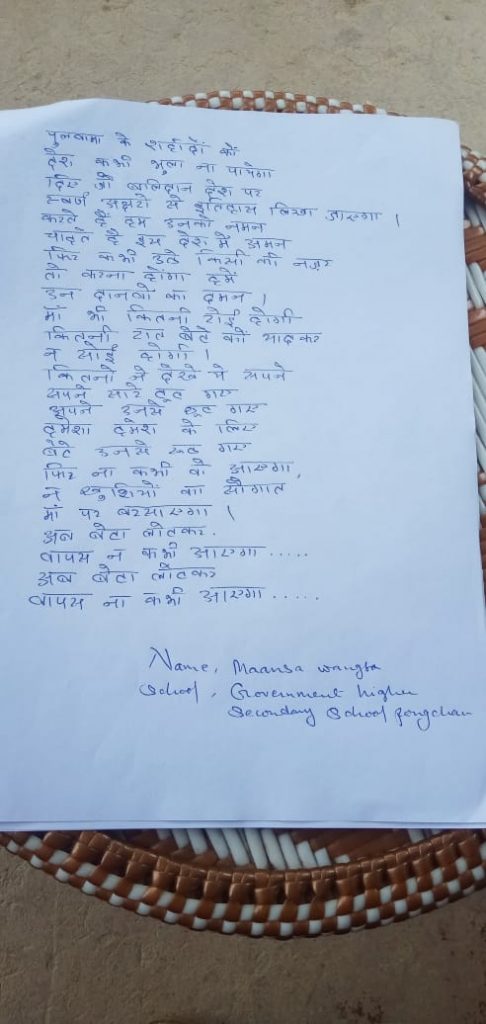 पुलवामा के शहीदों को
देश कभी भुला ना पायेगा
दिए जो बलिदान देश पर
स्वर्ण अक्षरों से इतिहास लिखा जाएगा ।
करते है हम इनको नमन
चाहते है इस देश में अमन
फिर कभी उठे किसी की नज़र
तो करना होगा हमें
इन दानवों का दमन ।
माँ भी कितनी रोई होगी
कितनी रात बेटे को याद कर
न सोई होगी ।
कितनो ने देखे थे सपने
सपने सारे टूट गए
अपने उनसे छूट गए
हमेशा हमेशा के लिए
बेटे उनसे रूठ गए
फिर ना कभी वो आएगा,
न खुशियों का सौगात
माँ पर बरसाएगा ।
अब बेटा लौटकर.
वापस न कभी आएगा .....
अब बेटा लौटकर
वापस ना कभी आएगा .....
Name, Maansa wangsa
School, Government higher
Secondary School